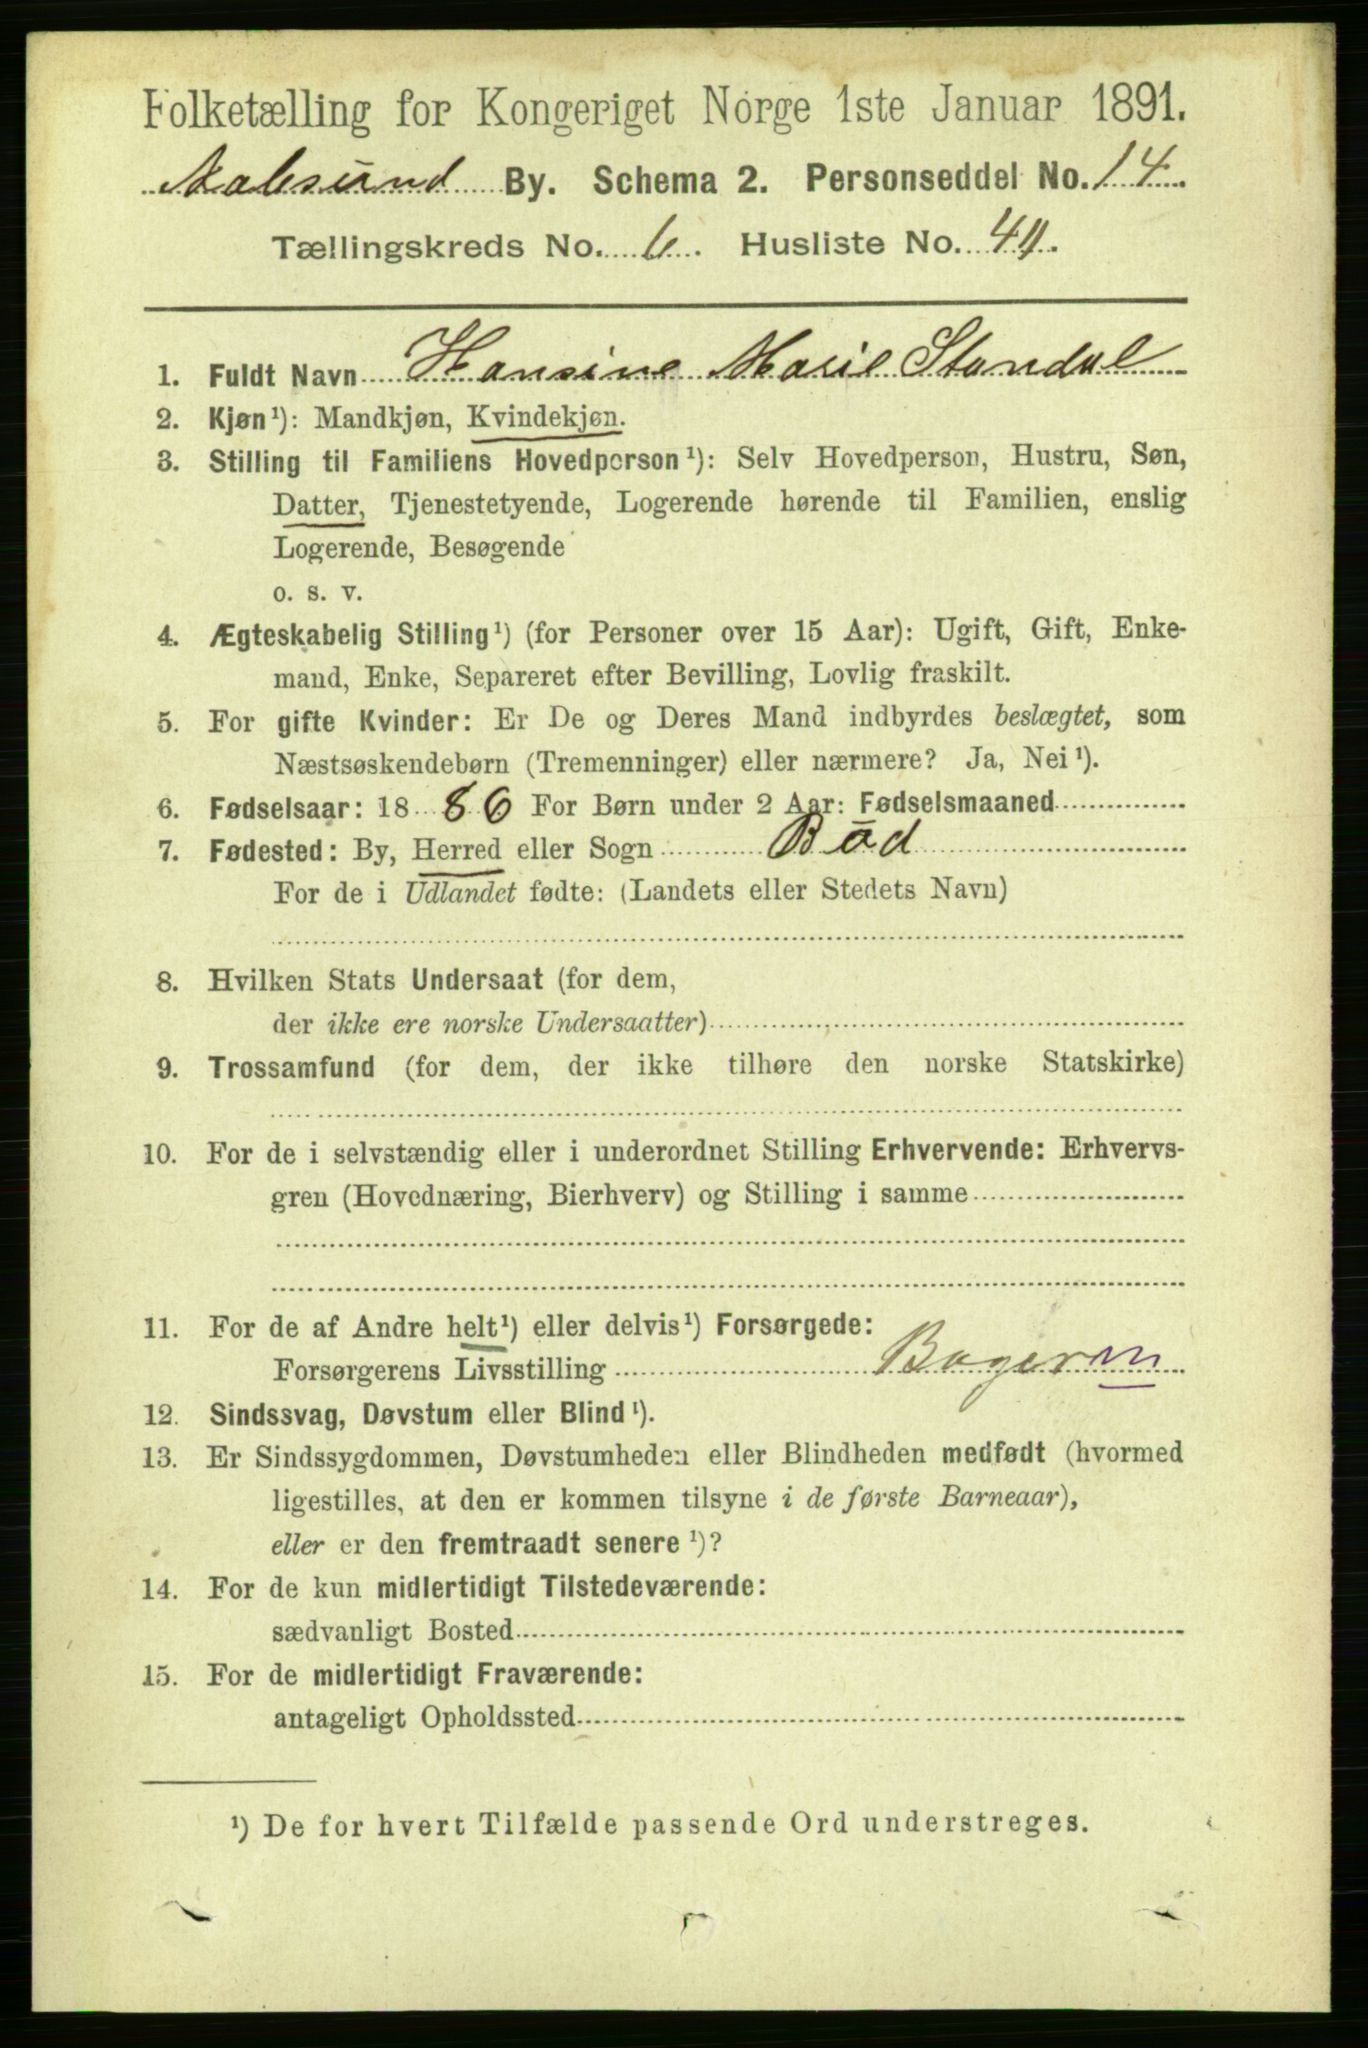 Folketælling for Kongeriget Norge 1ste Januar 1891.
Aalesund By. Schema 2. Personseddel No. 14
Tællingskreds No. 6. Husliste No. 41.
1. Fuldt Navn Hansine Marie Standal
2. Kjøn¹): Mandkjøn, Kvindekjøn.
3. Stilling til Familiens Hovedperson¹): Selv Hovedperson, Hustru, Søn,
Datter, Tjenestetyende, Logerende hørende til Familien, enslig
Logerende, Besøgende
o. s. v.
4. Ægteskabelig Stilling¹) (for Personer over 15 Aar): Ugift, Gift, Enke-
mand, Enke, Separeret efter Bevilling, Lovlig fraskilt.
5. For gifte Kvinder: Er De og Deres Mand indbyrdes beslægtet, som
Næstsøskendebørn (Tremenninger) eller nærmere? Ja, Nei¹).
6. Fødselsaar: 1886 For Børn under 2 Aar: Fødselsmaaned
7. Fødested: By, Herred eller Sogn Bud
For de i Udlandet fødte: (Landets eller Stedets Navn)
8. Hvilken Stats Undersaat (for dem,
der ikke ere norske Undersaatter)
9. Trossamfund (for dem, der ikke tilhøre den norske Statskirke)
10. For de i selvstændig eller i underordnet Stilling Erhvervende: Erhvervs-
gren (Hovednæring, Bierhverv) og Stilling i samme
11. For de af Andre helt¹) eller delvis¹) Forsørgede:
Forsørgerens Livsstilling
12. Sindssvag, Døvstum eller Blind¹).
13. Er Sindssygdommen, Døvstumheden eller Blindheden medfødt (hvormed
ligestilles, at den er kommen tilsyne i de første Barneaar),
eller er den fremtraadt senere¹)?
14. For de kun midlertidigt Tilstedeværende:
sædvanligt Bosted
15. For de midlertidigt Fraværende:
antageligt Opholdssted
¹) De for hvert Tilfælde passende Ord understreges.